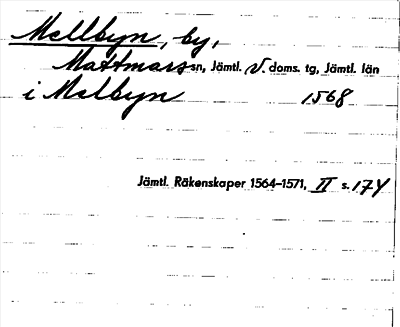 Mellbyn, by,
Mattmars sn, Jämtl. V. doms. tg, Jämtl. län
i Melbyn 1568
Jämtl. Räkenskaper 1564–1571, II s. 174